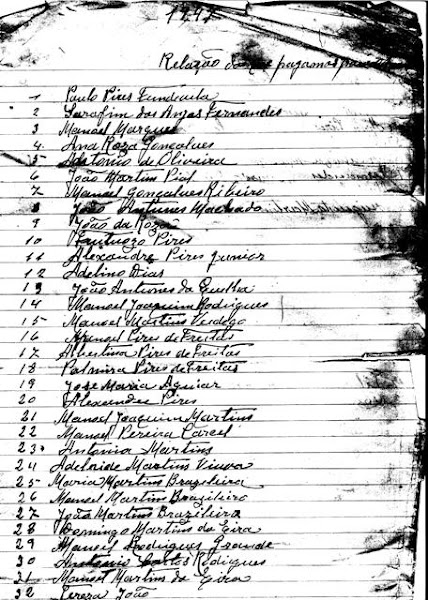 Relação
1 Paulo Pires
2 Serafim dos Anjos Fernandes
3 Manoel Marques
4 Ana Roza Gonçalves
5 Antonio de Oliveira
6 João Martins
7 Manoel Gonçalves Ribeiro
8 João Antunes Machado
9 João da Roza
10 Pires
11 Alexandre Pires junior
12 Adelino Dias
13 João Antiones da
14 Manoel Joaquim Rodrigues
15 Manoel Martins
16 Manoel Pires de Freitas
17 Albertina Pires de Freitas
18 Palmira Pires de Freitas
19 José Maria Aguiar
20 Alexandre Pires
21 Manoel Joaquim Martins
22 Manoel Pereira
23 Antonia Martins
24 Adelaide Martins Viuva
25 Maria Martins Brazileira
26 Manoel Martins Brazileiro
27 João Martins Brazileiro
28 Domingo Martins da Eira
29 Manoel Rodrigues Grande
30 Antonio Rodigues
31 Manoel Martins da Eira
32 Tereza João